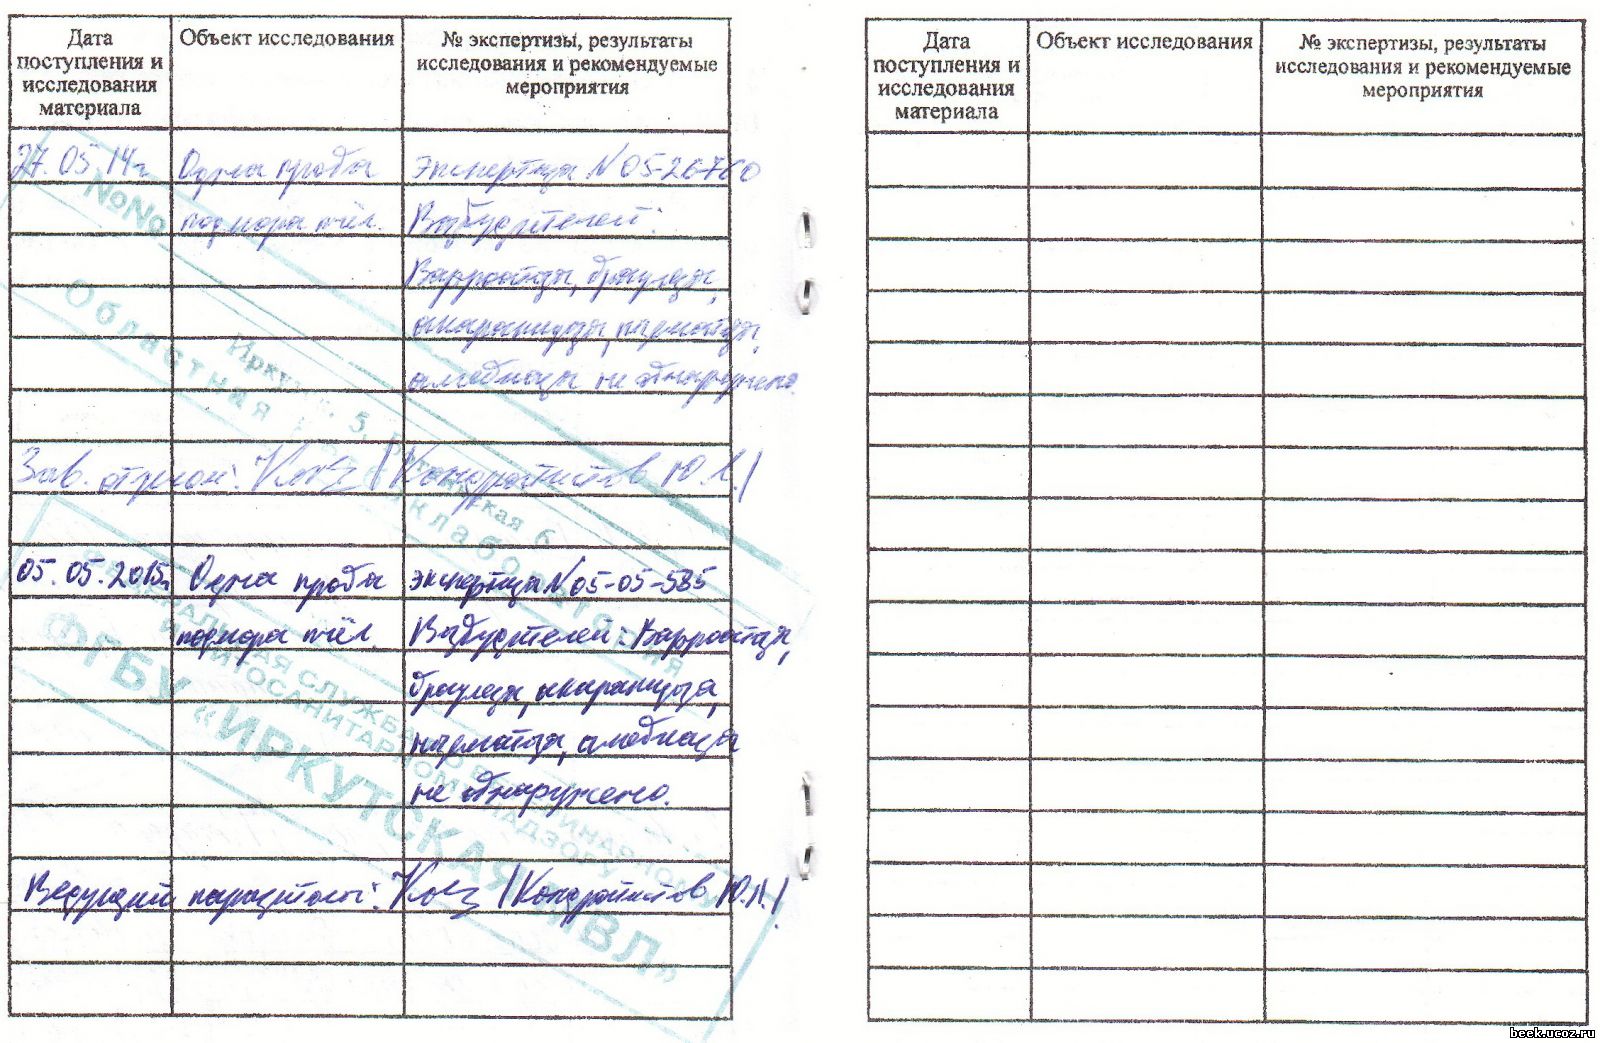 Дата поступления и исследования материала
Объект исследования
№ экспертизы, результаты исследования и рекомендуемые мероприятия
27.05.14г. Одна проба Экспертиза N 05-26760
подмора пчёл. Возбудителей:
Варроатоза, браулёза,
акарапидоза, нозематоза,
амёбиаза не обнаружено.
Зав. отделом: / Кондратистов Ю.Л./
05.05.2015г Одна проба экспертиза N 05-05-585
подмора пчёл. Возбудителей: Варроатоза,
браулеза, акарапидоза,
нозематоза, амебиаза
не обнаружено.
Ведущий паразитолог: /Кондратистов Ю.Л./
№№
Областная
лаборатория
ФГБУ «ИРКУТСКАЯ МВЛ»
Дата поступления и исследования материала
Объект исследования
№ экспертизы, результаты исследования и рекомендуемые мероприятия
beek.ucoz.ru